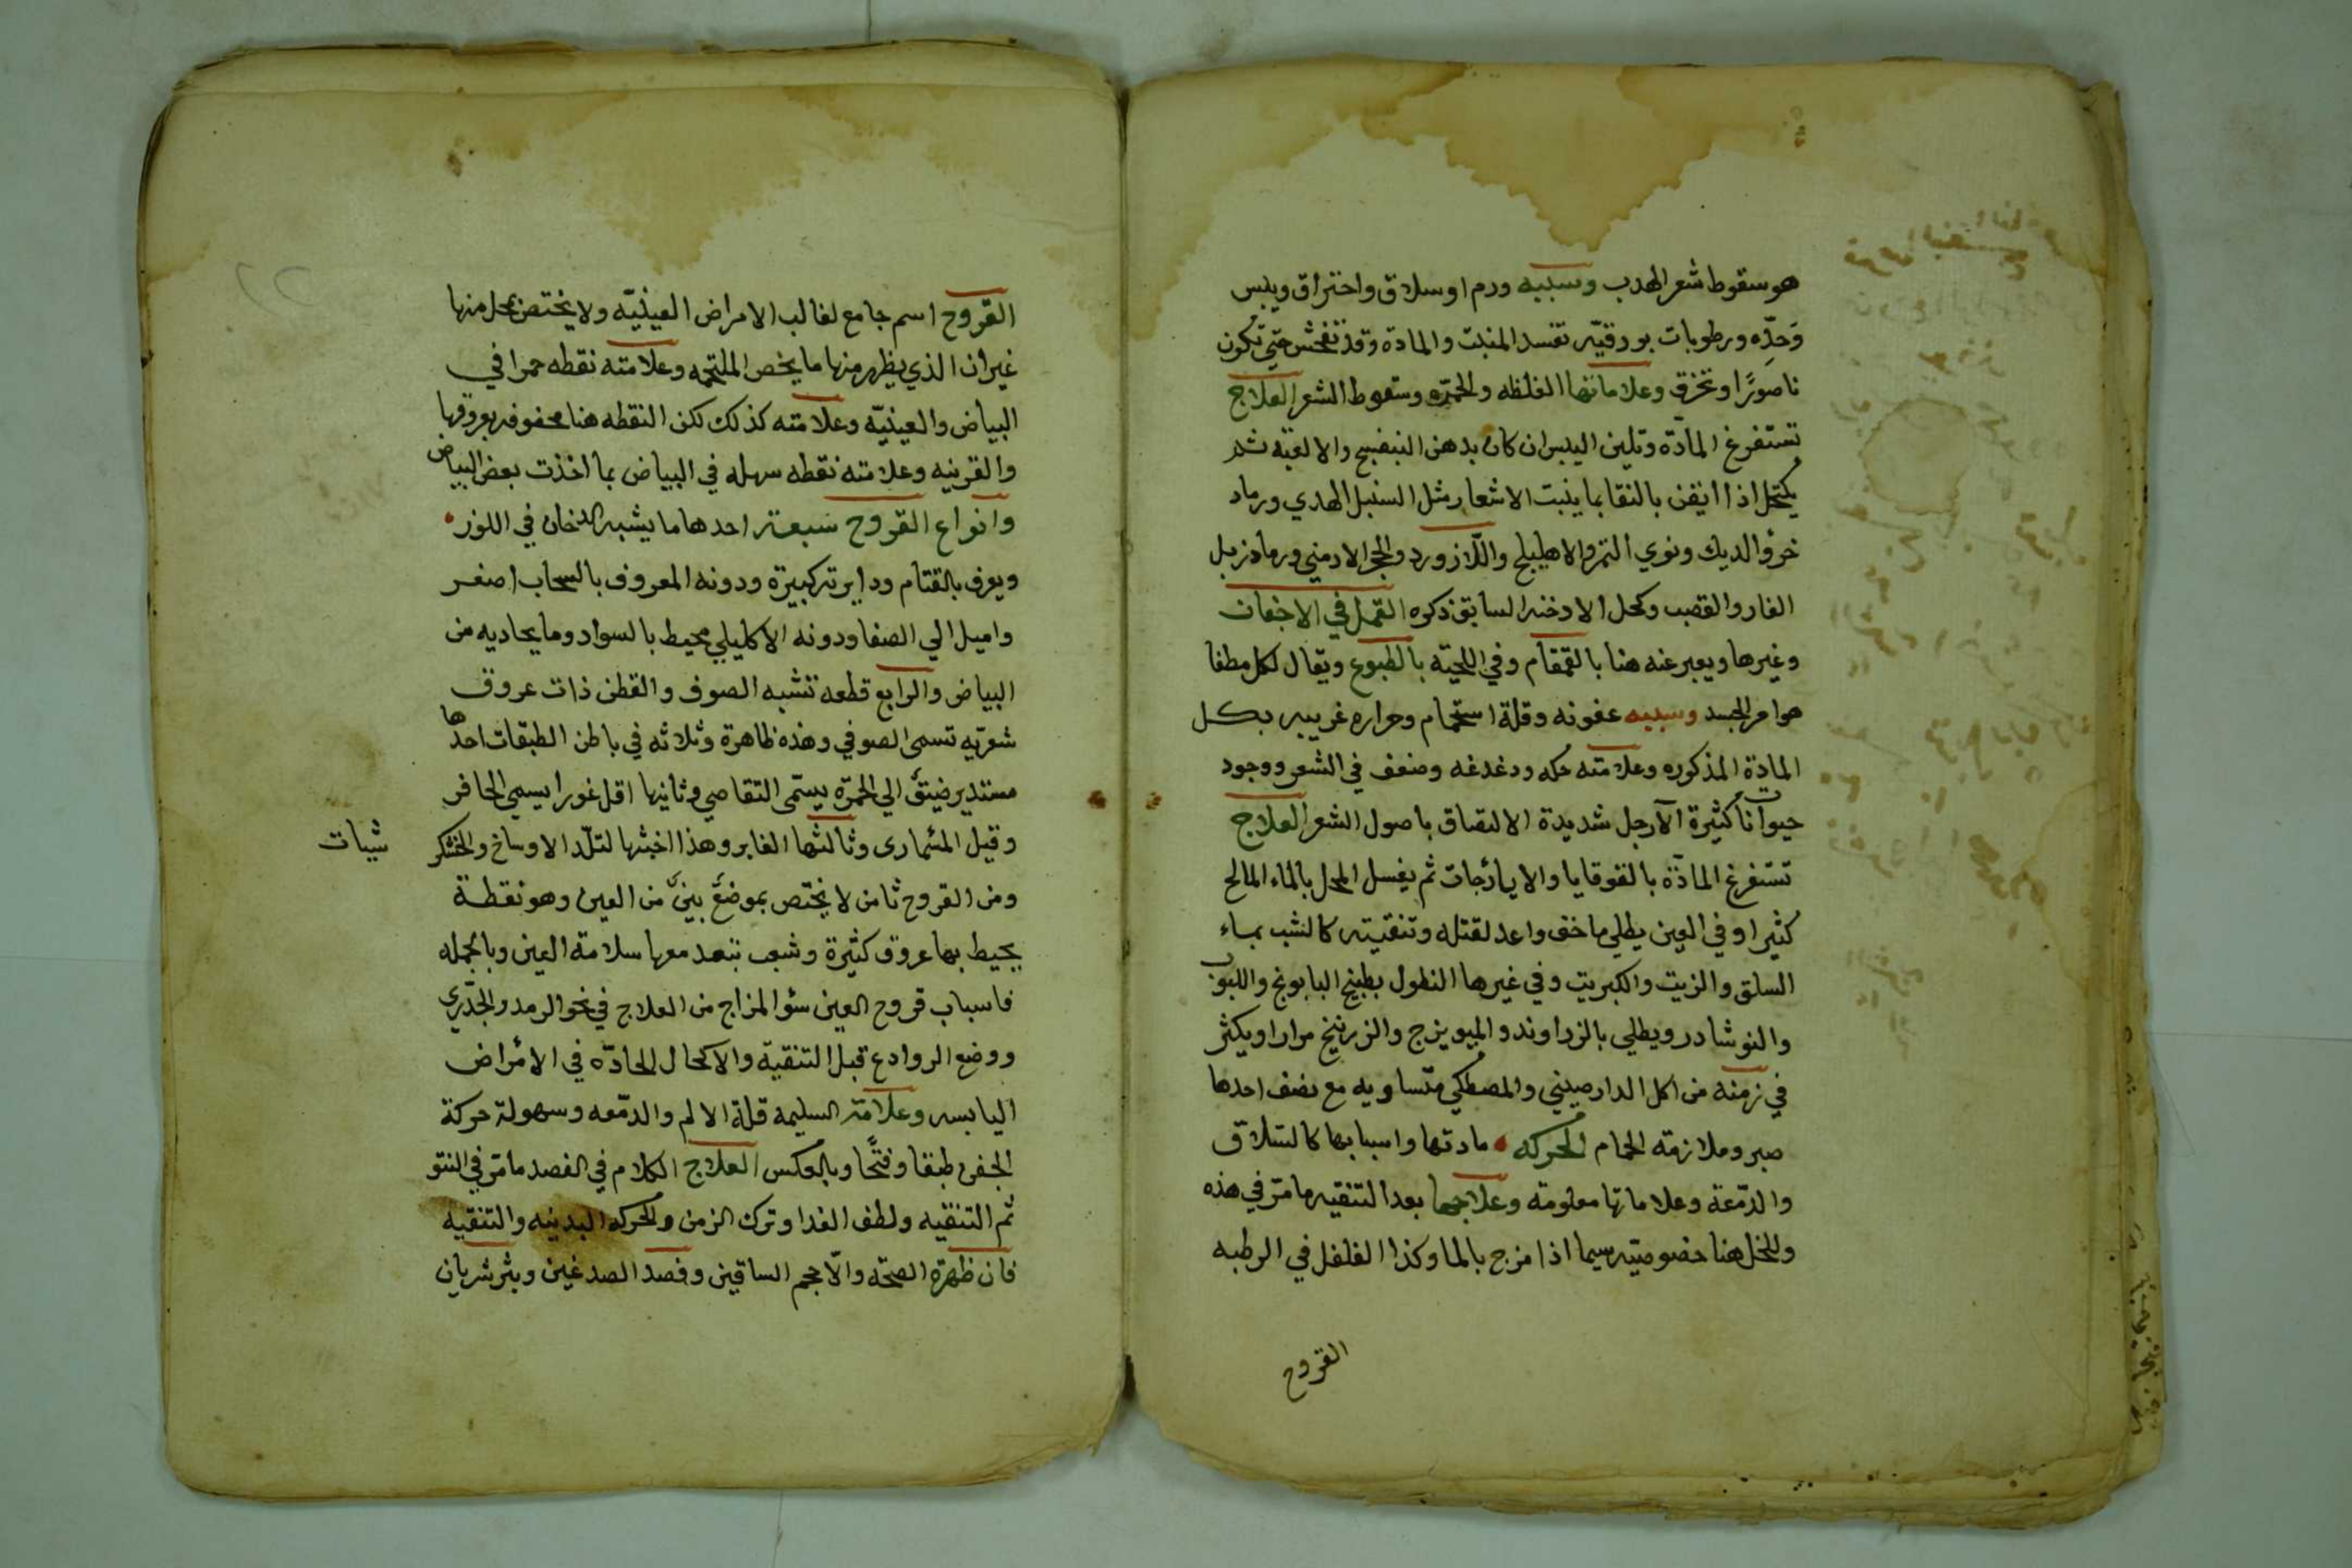 هو سقوط شعر الهدب وسببه ورم او سلاق واحتراق ويبس
وَحِدّه ورطوبات بورقيّه تفسد المنبت والمادة وقد تفحش حتي تكون
ناصورًا وتخزق وعلاماتها الغلظه والحمرّه وسقوط الشعر العلاج
تستفرغ المآدّة وتلين اليبس ان كان بدهن البنفسج والالعبة ثم
يكتحل اذا ايقن بالنقا بما ينبت الاشعار مثل السنبل الهندي ورماد
خرؤ الديك ونوي التمر والاهليلج واللازورد والحجر الارمني ورماد زبل
الفار والقصب وكحل الادخنه السابق ذكره القمل في الاجفان
وغيرها ويعبر عنه هنا بالقمقام وفي اللحيّه بالطبوع ويقال لكل مطفا
هوامر الجسد وسببه عفونه وقلة استحمام وحراره غريبه بكل
المادة المذكوره وعلامته حكه ودغدغه وضعف في الشعر ووجود
حيوانات كثيرة الآرجل شديدة الالتصاق باصول الشعر العلاج
تستفرغ المادّة بالقوقايا والايارٔجات ثم يغسل المحل بالماء المالح
كثيرا وفي العين يطلي ماخف واعد لقتله وتنقيته كالشب بماء
السلق والزيت والكبريت وفي غيرها النطول بطبيخ البابونج واللبوب
والنوشادر ويطلي بالزراوند والميويزج والزرنيخ مرارا ويكثر
في زمنه من اكل الدارصيني والمصطكي متساويه مع نصف احدها
صبر وملازمة الحمام الحركه مادتها واسبابها كالسلاق
والدمّعة وعلاماتها معلومة وعلاجها بعد التنقيه ما مرّ في هذه
وللخل هنا خصوصيّه سيما اذا مزج بالما وكذا الفلفل في الرطبه
القروح
القروح اسم جامع لغالب الامراض العينيّه ولا يختص بمحل منها
غير ان الذي يظهر منها ما يخص الملتحمه وعلامته نقطه حمرا في
البياض والعينيّه وعلامته كذلك لكن النقطه هنا محفوفه بعروقها
والقرنيه وعلامته نقطه سهله في البياض بما اخذت بعض البياض
وانواع القروح سَبعة احدها ما يشبه الدخان في اللون
ويعرف بالقتام ودايرته كبيرة ودونه المعروف بالسحاب اصغر
واميل الي الصفا ودونه الاكليلي محيط بالسواد وما يحاديه من
البياض والرابع قطعه تشبه الصوف والقطن ذات عروق
شعريّه تسمى الصوفي وهذه ظاهرة وثلاثه في باطن الطبقات احدها
مستدير ضيق الي الحمرّه يسمّى التقاصي وثانيها اقل غورا يسمي الحافر
وقيل المسٔمارى وثالثها الغاير وهذا اخبثها لتلّد الاوساخ والخشكر
شيات
ومن القروح ثامن لا يختص بموضعٍ بينٍ من العين وهو نقطة
يحيط بها عروق كثيرة وشعب تبعد معها سلامة العين وبالجمله
فاسباب قروح العين سؤ المزاج من العلاج في نحو الرمد والجدّري
ووضع الروادع قبل التنقية والاكحال الحادّه في الامٔراض
اليابسه وعلامة السليمه قلة الالم والدمّعه وسهولة حركة
الجفن طبقا وفتحًا وبالعكس العلاج الكلام في الفصد ما مرّ في النتو
ثم التنقيه ولطف الغدا وترك الزمن والحركه البدنيه والتنقيه
فان ظهرة الصحّه والّا حجم الساقين وفصد الصدغين وبثر شريان